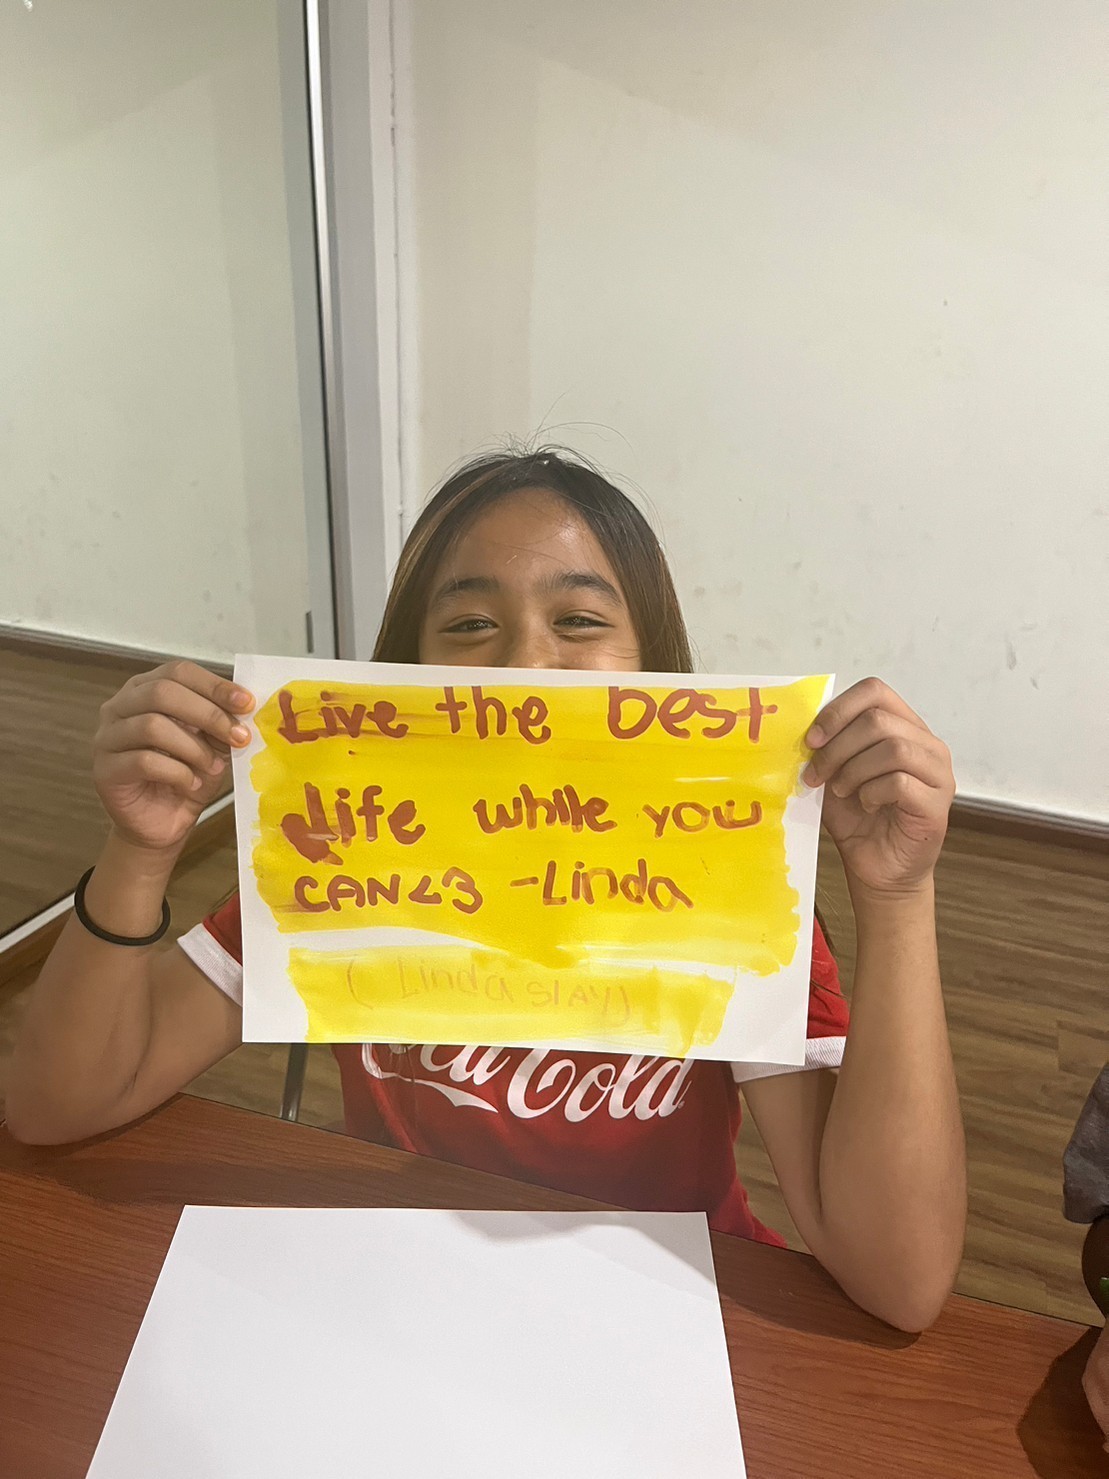 Live the best
life while you
CAN<3 -Linda
( Linda slay)
Coca Cola